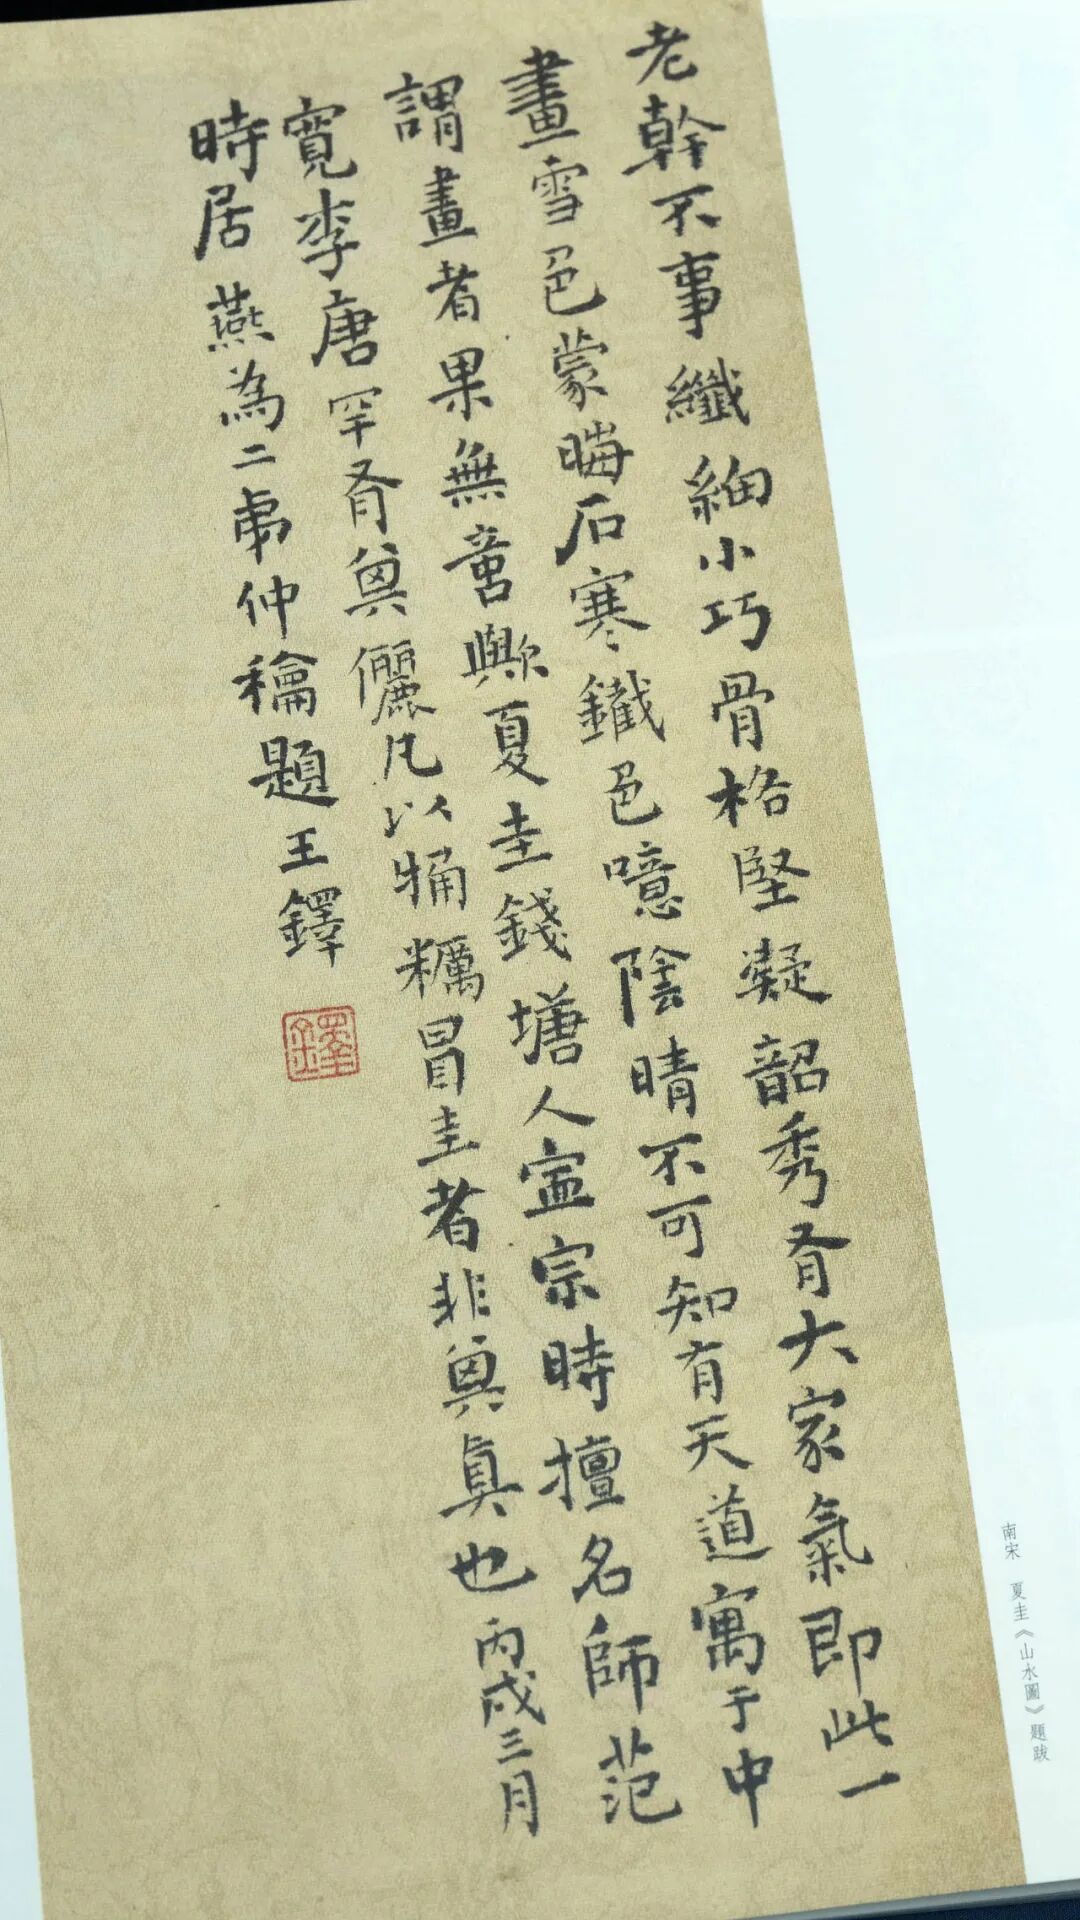 老幹不事纖細小巧骨格堅凝韶秀有大家氣即此一
畫雪色蒙晦石寒鐵色噫陰晴不可知有天道寓于中
謂畫者果無言歟夏圭錢塘人寍宗時擅名師范
寬李唐罕有與儷凡以粗糲冒圭者非與真也丙戌三月
時居燕為二弟仲龢題王鐸
鐸
南宋 夏圭《山水圖》題跋